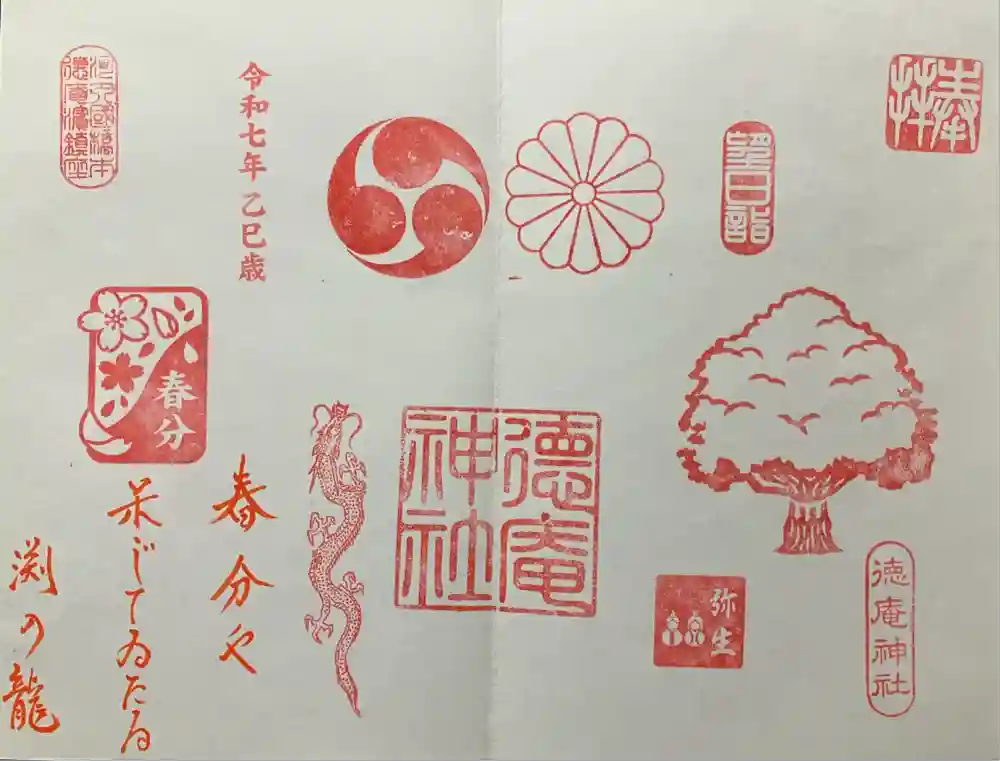 奉拝
望日詣
徳庵神社
弥生
徳庵
神社
令和七年乙巳歳
春分
春分や
じてゐたる
渕の龍
河内國橋本
徳庵濱鎮座